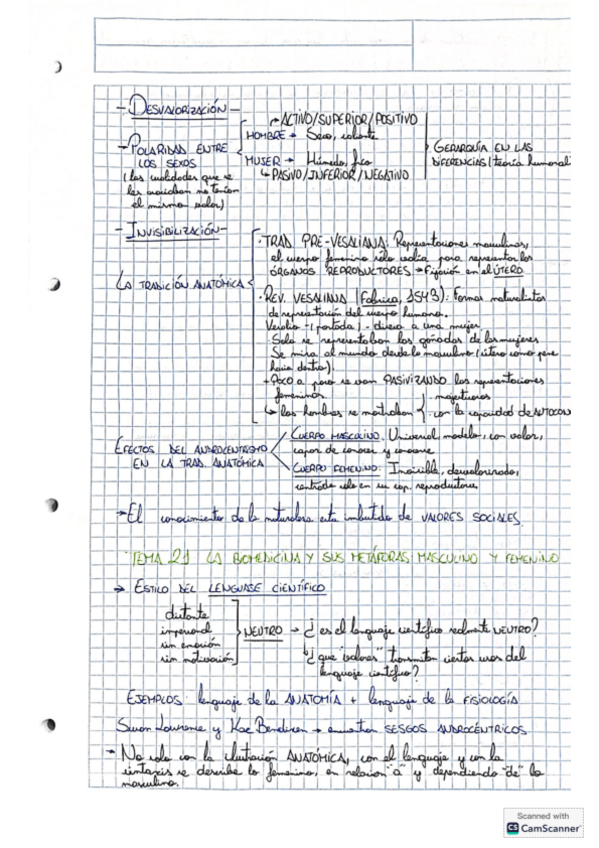 - DESVALORIZACIÓN -
- POLARIDAD ENTRE LOS SEXOS
(las cualidades que se les asociaban no tenían el mismo valor)
ACTIVO/SUPERIOR/POSITIVO
HOMBRE → Seco, caliente
MUJER → Húmedo, frío
↳ PASIVO/INFERIOR/NEGATIVO
GERARQUÍA EN LAS
DIFERENCIAS (teoría humoral
- INVISIBILIZACIÓN -
LA TRADICIÓN ANATÓMICA
· TRAD. PRE-VESALIANA: Representaciones masculinas,
el cuerpo femenino sólo valía para representar los
ÓRGANOS REPRODUCTORES → Fijación en el ÚTERO.
· REV. VESALIANA (Fabrica, 1543): Formas naturalistas
de representación del cuerpo humano.
Vesalio - (portada) - disecó a una mujer.
Solo se representaban las gónadas de las mujeres
Se mira al mundo desde lo masculino (útero como pene
hacia dentro).
→ Poco a poco se van PASIVIZANDO las representaciones
femeninas.
↳ los hombres se mostraban
majestuosos
· con la capacidad de AUTOCON
EFECTOS DEL ANDROCENTRISMO
EN LA TRAD. ANATÓMICA
CUERPO MASCULINO: Universal, modelo, con valor,
capaz de conocer y
CUERPO FEMENINO: Invisible, desvalorizado,
centrado solo en su cap. reproductora.
→ El conocimiento de la naturaleza está imbuido de VALORES SOCIALES.
TEMA 21 LA BIOMEDICINA Y SUS METÁFORAS, MASCULINO Y FEMENINO
→ ESTILO DEL LENGUAJE CIENTÍFICO
distante
impersonal
sin emoción
sin motivación
NEUTRO → ¿es el lenguaje científico realmente NEUTRO?
¿que "valores" transmiten ciertos usos del
lenguaje científico?
EJEMPLOS: lenguaje de la ANATOMÍA + lenguaje de la FISIOLOGÍA
Lawrence y Kae Bendixen → encuentran SESGOS ANDROCÉNTRICOS
→ No solo con la ilustración ANATÓMICA, con el lenguaje y con la
sintaxis se describe lo femenino, en relación "a" y dependiendo "de" lo
masculino.
Scanned with
CS CamScanner